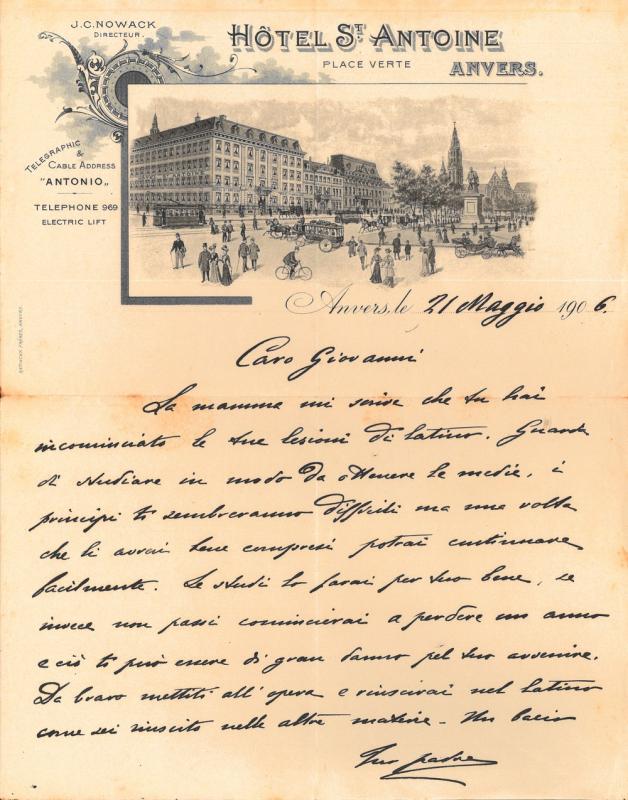 J.C. NOWACK
DIRECTEUR.
HÔTEL ST ANTOINE
PLACE VERTE
ANVERS.
TELEGRAPHIC
&
CABLE ADDRESS
"ANTONIO"
TELEPHONE 969
ELECTRIC LIFT
Anvers, le 21 Maggio 1906.
Caro Giovanni
La mamma mi scrive che tu hai
incominciato le tue lezioni di latino. Guarda
di studiare in modo da ottenere la medie, i
principi ti sembreranno difficili ma una volta
che li avrai bene compresi potrai continuare
facilmente. Se studi lo farai per tuo bene, se
invece non passi comincierai a perdere un anno
e ciò ti può essere di gran danno pel tuo avvenire.
Da bravo mettiti all'opera e riuscirai nel latino
come sei riuscito nelle altre materie - Un bacio
Tuo padre